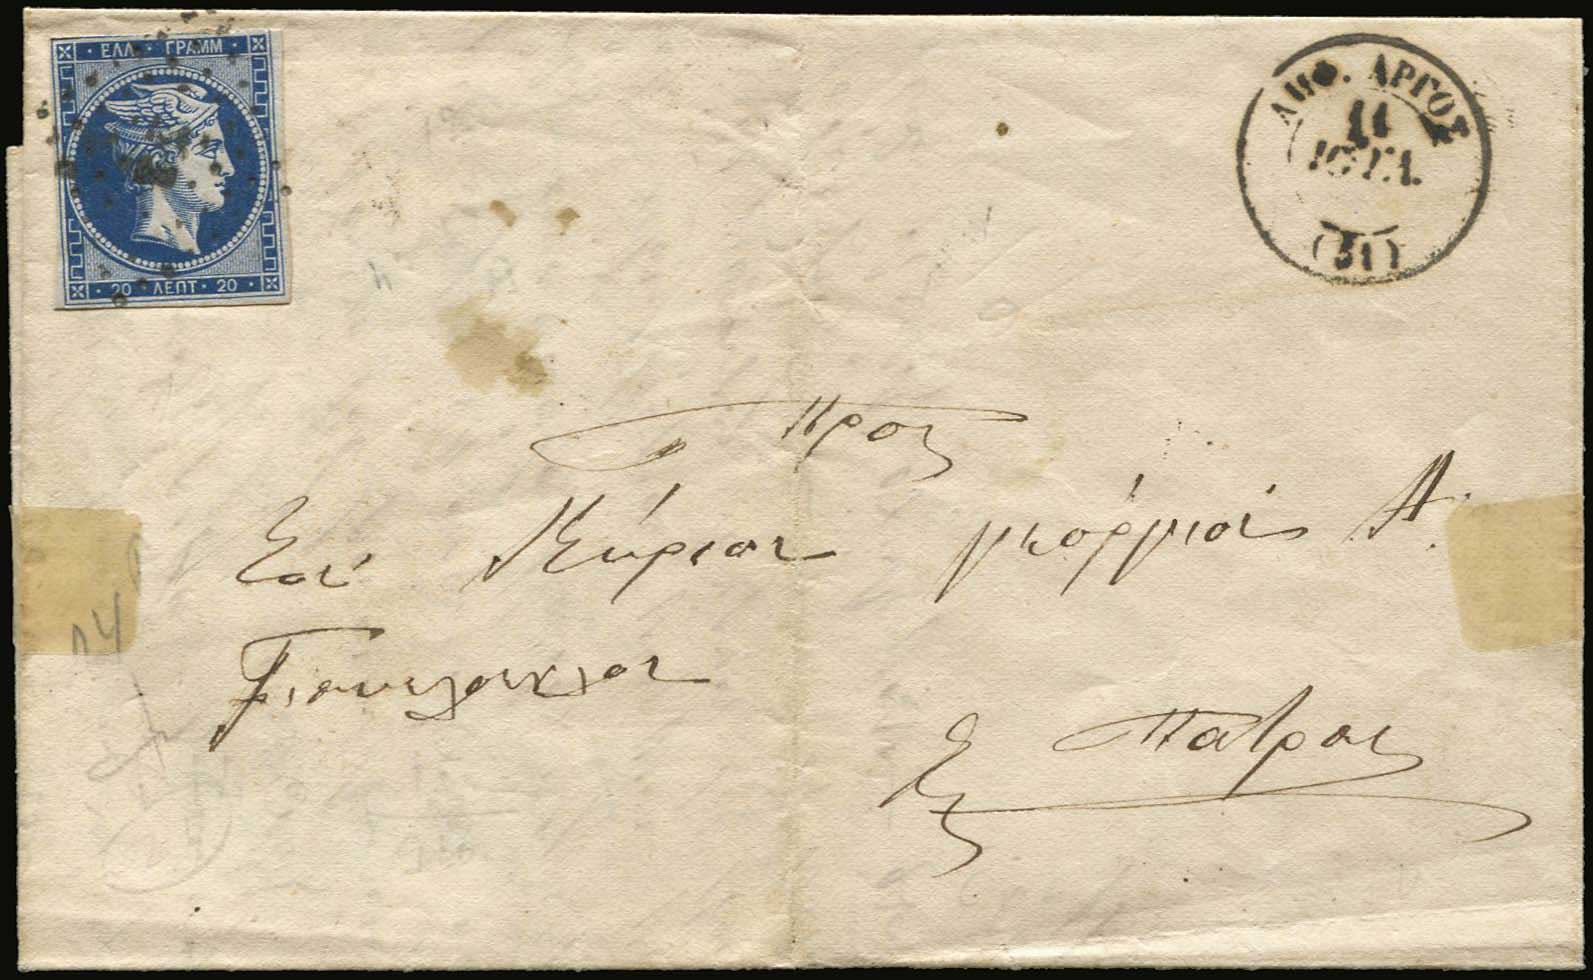 ΕΛΛ · ΓΡΑΜΜ
20 · ΛΕΠΤ · 20
ΑΜΦ. ΑΡΓΟΣ
11
ΙΟΥΛ.
(51)
Προς
Τον Κύριον Γεώργιον Α.
Εις Πατρας